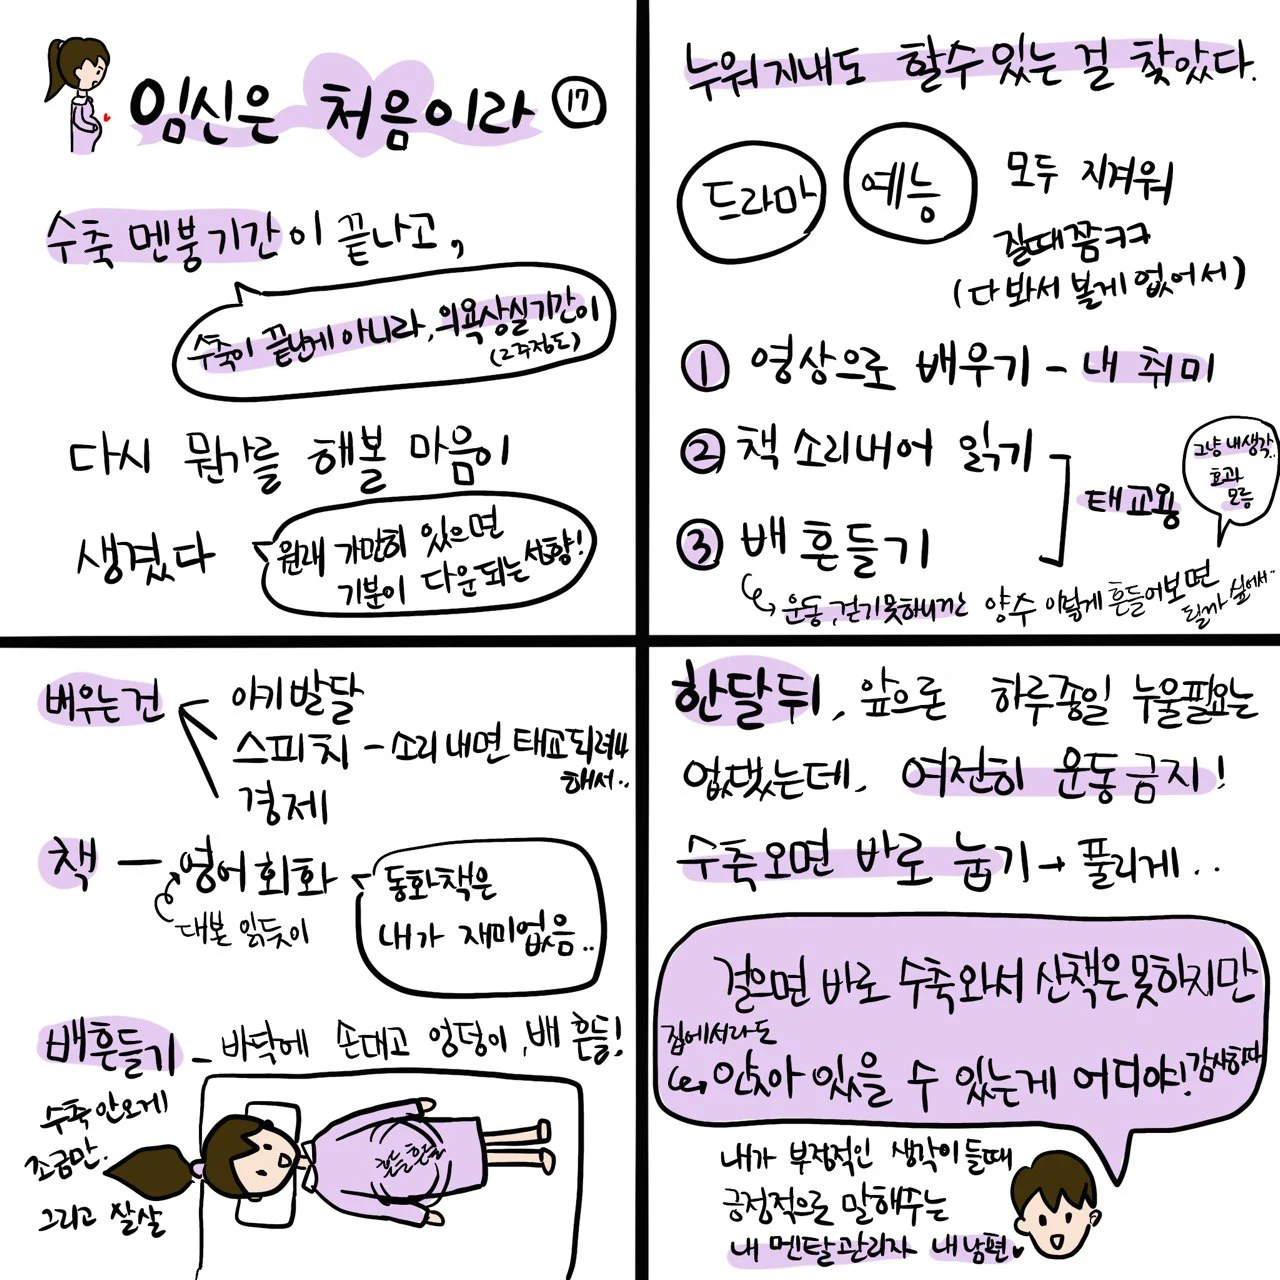 임신은 처음이라 17
수축 멘붕기간이 끝나고,
수축이 끝난게 아니라, 의욕상실기간이
(2주정도)
다시 뭔가를 해볼 마음이
생겼다
원래 가만히 있으면
기분이 다운되는 성향!
누워지내도 할수있는 걸 찾았다.
드라마 예능 모두 지겨워
질때쯤ㅋㅋ
(다 봐서 볼게 없어서)
① 영상으로 배우기 - 내 취미
② 책 소리내어 읽기
③ 배 흔들기
태교용
그냥 내생각..
효과
모름
운동, 걷기 못하니깐 양수 이렇게 흔들어보면
될까 싶어서..
배우는건
아키발달
스피치 - 소리내면 태교되려나
해서..
경제
책 - 영어회화
대본 읽듯이
동화책은
내가 재미없음..
배흔들기 - 바닥에 손대고 엉덩이, 배 흔들!
수축 안오게
조금만.
그리고 살살
흔들흔들
한달뒤, 앞으론 하루종일 누울필요는
없댔는데, 여전히 운동금지!
수축오면 바로 눕기 → 풀리게..
걸으면 바로 수축와서 산책은 못하지만
집에서라도
앉아 있을 수 있는게 어디야! 감사하다
내가 부정적인 생각이 들때
긍정적으로 말해주는
내 멘탈관리자 내남편